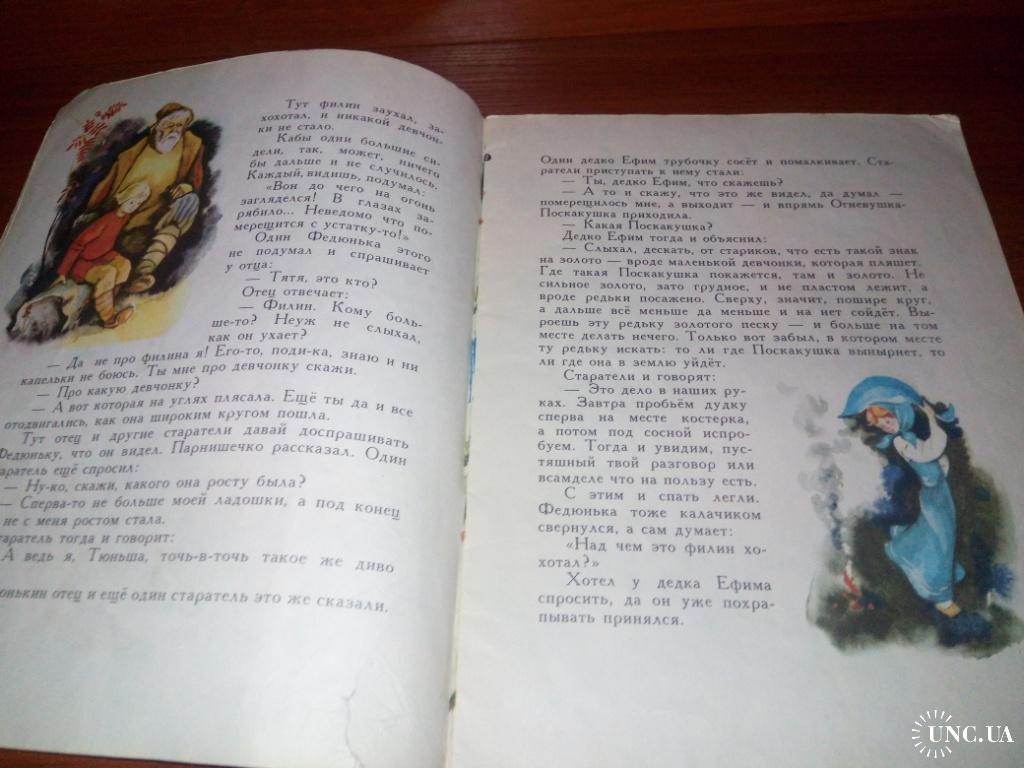 Тут филин заухал, за-
хохотал, и никакой девчон-
ки не стало.
Кабы одни большие си-
дели, так, может, ничего
бы дальше и не случилось.
Каждый, видишь, подумал:
«Вон до чего на огонь
загляделся! В глазах за-
рябило... Неведомо что по-
мерещится с устатку-то!»
Один Федюнька этого
не подумал и спрашивает
у отца:
— Тятя, это кто?
Отец отвечает:
— Филин. Кому боль-
ше-то? Неуж не слыхал,
как он ухает?
— Да не про филина я! Его-то, поди-ка, знаю и ни
капельки не боюсь. Ты мне про девчонку скажи.
— Про какую девчонку?
— А вот которая на углях плясала. Ещё ты да и все
отодвигались, как она широким кругом пошла.
Тут отец и другие старатели давай доспрашивать
Федюньку, что он видел. Парнишечко рассказал. Один
таратель ещё спросил:
— Ну-ко, скажи, какого она росту была?
— Сперва-то не больше моей ладошки, а под конец
не с меня ростом стала.
таратель тогда и говорит:
А ведь я, Тюньша, точь-в-точь такое же диво
онькин отец и ещё один старатель это же сказали.
Один дедко Ефим трубочку сосёт и помалкивает. Ста-
ратели приступать к нему стали:
— Ты, дедко Ефим, что скажешь?
— А то и скажу, что это же видел, да думал —
померещилось мне, а выходит — и впрямь Огневушка-
Поскакушка приходила.
— Какая Поскакушка?
Дедко Ефим тогда и объяснил:
— Слыхал, дескать, от стариков, что есть такой знак
на золото — вроде маленькой девчонки, которая пляшет.
Где такая Поскакушка покажется, там и золото. Не
сильное золото, зато грудное, и не пластом лежит, а
вроде редьки посажено. Сверху, значит, пошире круг,
а дальше всё меньше да меньше и на нет сойдёт. Вы-
роешь эту редьку золотого песку — и больше на том
месте делать нечего. Только вот забыл, в котором месте
ту редьку искать: то ли где Поскакушка вынырнет, то
ли где она в землю уйдёт.
Старатели и говорят:
— Это дело в наших ру-
ках. Завтра пробьём дудку
сперва на месте костерка,
а потом под сосной испро-
буем. Тогда и увидим, пус-
тяшный твой разговор или
всамделе что на пользу есть.
С этим и спать легли.
Федюнька тоже калачиком
свернулся, а сам думает:
«Над чем это филин хо-
хотал?»
Хотел у дедка Ефима
спросить, да он уже похра-
пывать принялся.
UNC.UA